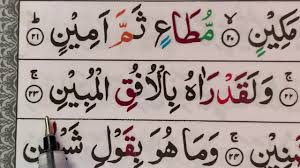 مَكِيْنٍ ۙ ٢٠ مُّطَاعٍ ثَمَّ اَمِيْنٍ ؕ ٢١
ۚ ٢٢ وَلَقَدْ رَاٰهُ بِالْاُفُقِ الْمُبِيْنِ ۚ ٢٣
وَمَا هُوَ بِقَوْلِ